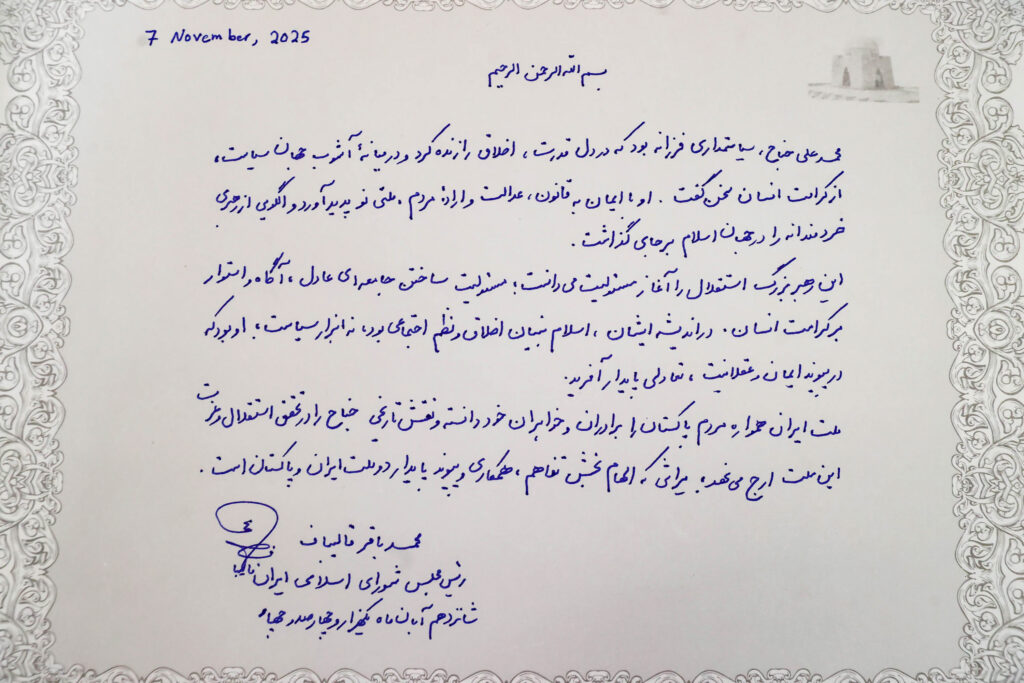 7 November, 2025
بسم الله الرحمن الرحیم
محمد علی جناح، سیاستمداری فرزانه بود که در دل قدرت، اخلاق را زنده کرد و در میانهٔ آشوب جهان سیاست،
از کرامت انسان سخن گفت. او با ایمان به قانون، عدالت و ارادهٔ مردم، ملتی نو پدید آورد و الگوی از رهبری
خردمندانه را در جهان اسلام بر جای گذاشت.
این رهبر بزرگ استقلال را آغاز مسئولیت می‌دانست؛ مسئولیت ساختن جامعه‌ای عادل، آگاه و استوار
بر کرامت انسان. در اندیشه ایشان، اسلام بنیان اخلاق و نظم اجتماعی بود، نه ابزار سیاست؛ او بود که
در پیوند ایمان و عقلانیت، تعادلی پایدار آفرید.
ملت ایران همواره مردم پاکستان را برادران و خواهران خود دانسته و نقش تاریخی جناح را در تحقق استقلال و عزت
این ملت ارج می‌نهد؛ میراثی که الهام بخش تفاهم، همکاری و پیوند پایدار دو ملت ایران و پاکستان است.
محمد باقر قالیباف
رئیس مجلس شورای اسلامی ایران
شانزدهم آبان ماه یکهزار و چهارصد و چهار